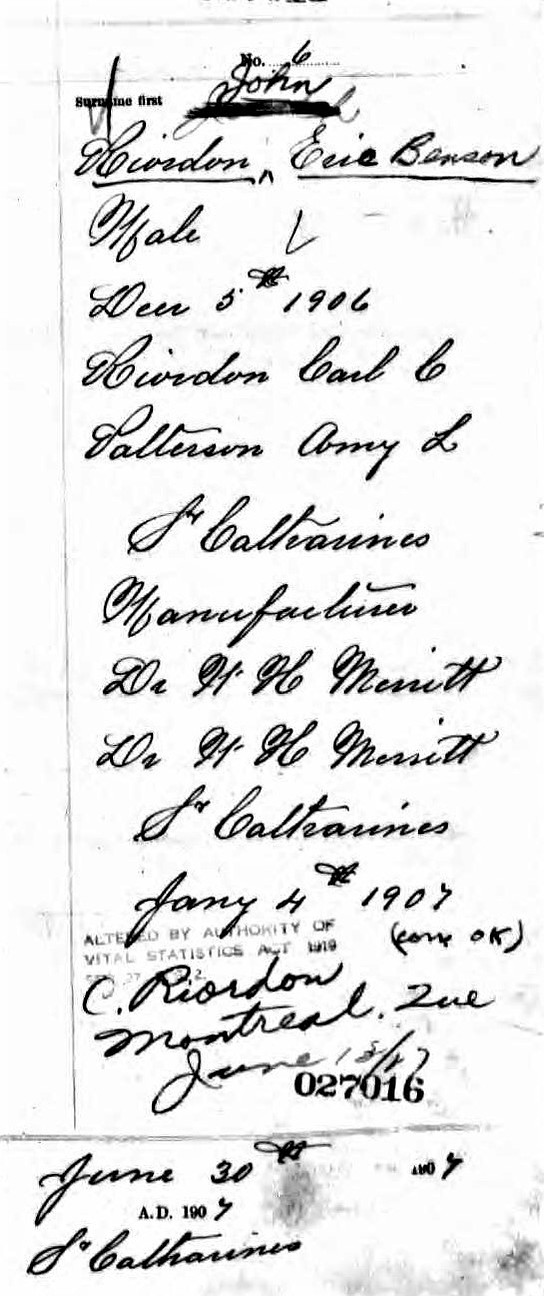 No. 6
John
Surname first
Riordon, Eric Benson
Male
Decr 5th 1906
Riordon Carl C
Patterson Amy L
St Catharines
Manufacturer
Dr W H Merritt
Dr W H Merritt
St Catharines
Jany 4th 1907
(corr OK)
ALTERED BY AUTHORITY OF
VITAL STATISTICS ACT 1919
C. Riordon
Montreal, Que
June
027016
June 30th 1907
A.D. 1907
St Catharines